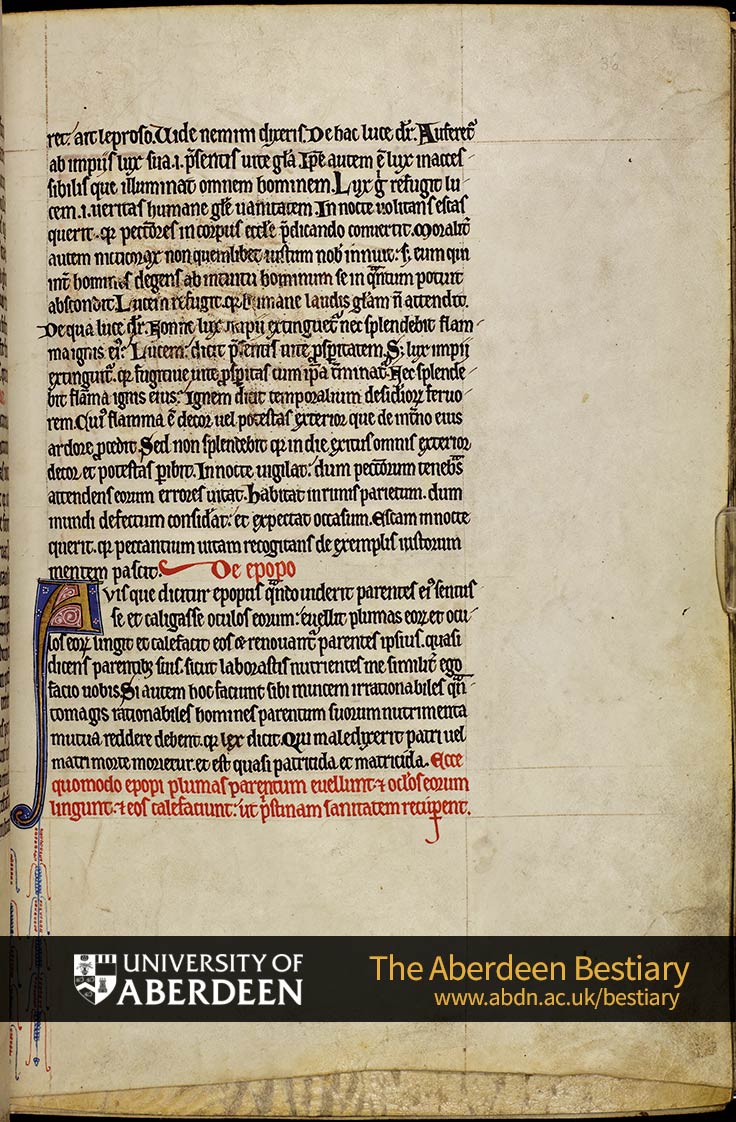 36
ret᷑ ait leproso. Uide nemini dixeris. De hac luce dr̄. Auferet᷑
ab impiis lux sua .i. p̄sentis uite gl̄a. Ip̄e autem ē lux inacces-
sibilis que illuminat omnem hominem. Lux g̊ refugit lu-
cem .i. ueritas humane gl̄e uanitatem. In nocte uolitans escas
querit. qr̄ peccōres in corpus eccl̄e p̄dicando conuertit. Moralit᷑
autem nicticorax non quemlibet iustum nob̄ innuit: s; eum qui
int̄ homines degens ab intuitu hominum se in qᷓntum poterit
abscondit. Lucem refugit. qr̄ humane laudis gl̄am n̄ attendit.
De qua luce dr̄. Nonne lux impii extinguet᷑ nec splendebit flam-
ma ignis ei᷒? Lucem: dicit p̄sentis uite ꝓsperitatem. S; lux impii
extinguit᷑. qr̄ fugitiue uite ꝓsperitas cum ip̄a t̄minat᷑. Nec splende-
bit flāma ignis eius? Ignem dicit temporalium desidioꝝ feruo-
rem. Cui᷒ flamma ē decor uel potestas exterior que de int̄no eius
ardore ꝓcedit. Sed non splendebit qr̄ in die exitus omnis exterior
decor et potestas ꝑibit. In nocte uigilat: dum peccōrum tenebᷓs
attendens eorum errores uitat. Habitat in rimis parietum. dum
mundi defectum considāt: et expectat occasum. Escam in nocte
querit. qr̄ peccantium uitam recogitans de exemplis iustorum
mentem pascit. De epopo
Auis que dicitur epopus qᷓndo uiderit parentes ei᷒ senuis
se et caligasse oculos eorum: euellit plumas eoꝝ et ocu-
los eoꝝ lingit et calefacit eos ⁊ renouant᷑ parentes ipsius. quasi
dicens parentibꝫ suis. sicut laborastis nutrientes me similit᷑ ego
facio uobis. Si autem hoc faciunt sibi inuicem irrationabiles qᷓn-
to magis rationabiles homines parentum suorum nutrimenta
mutua reddere debent. qr̄ lex dicit. Qui maledixerit patri uel
matri morte morietur. et est quasi patricida et matricida. Ecce
quomodo epopi plumas parentum euellunt: ⁊ oclōs eorum
lingunt: ⁊ eos calefaciunt: ut p̄stinam sanitatem recipient.
UNIVERSITY OF
ABERDEEN
The Aberdeen Bestiary
www.abdn.ac.uk/bestiary